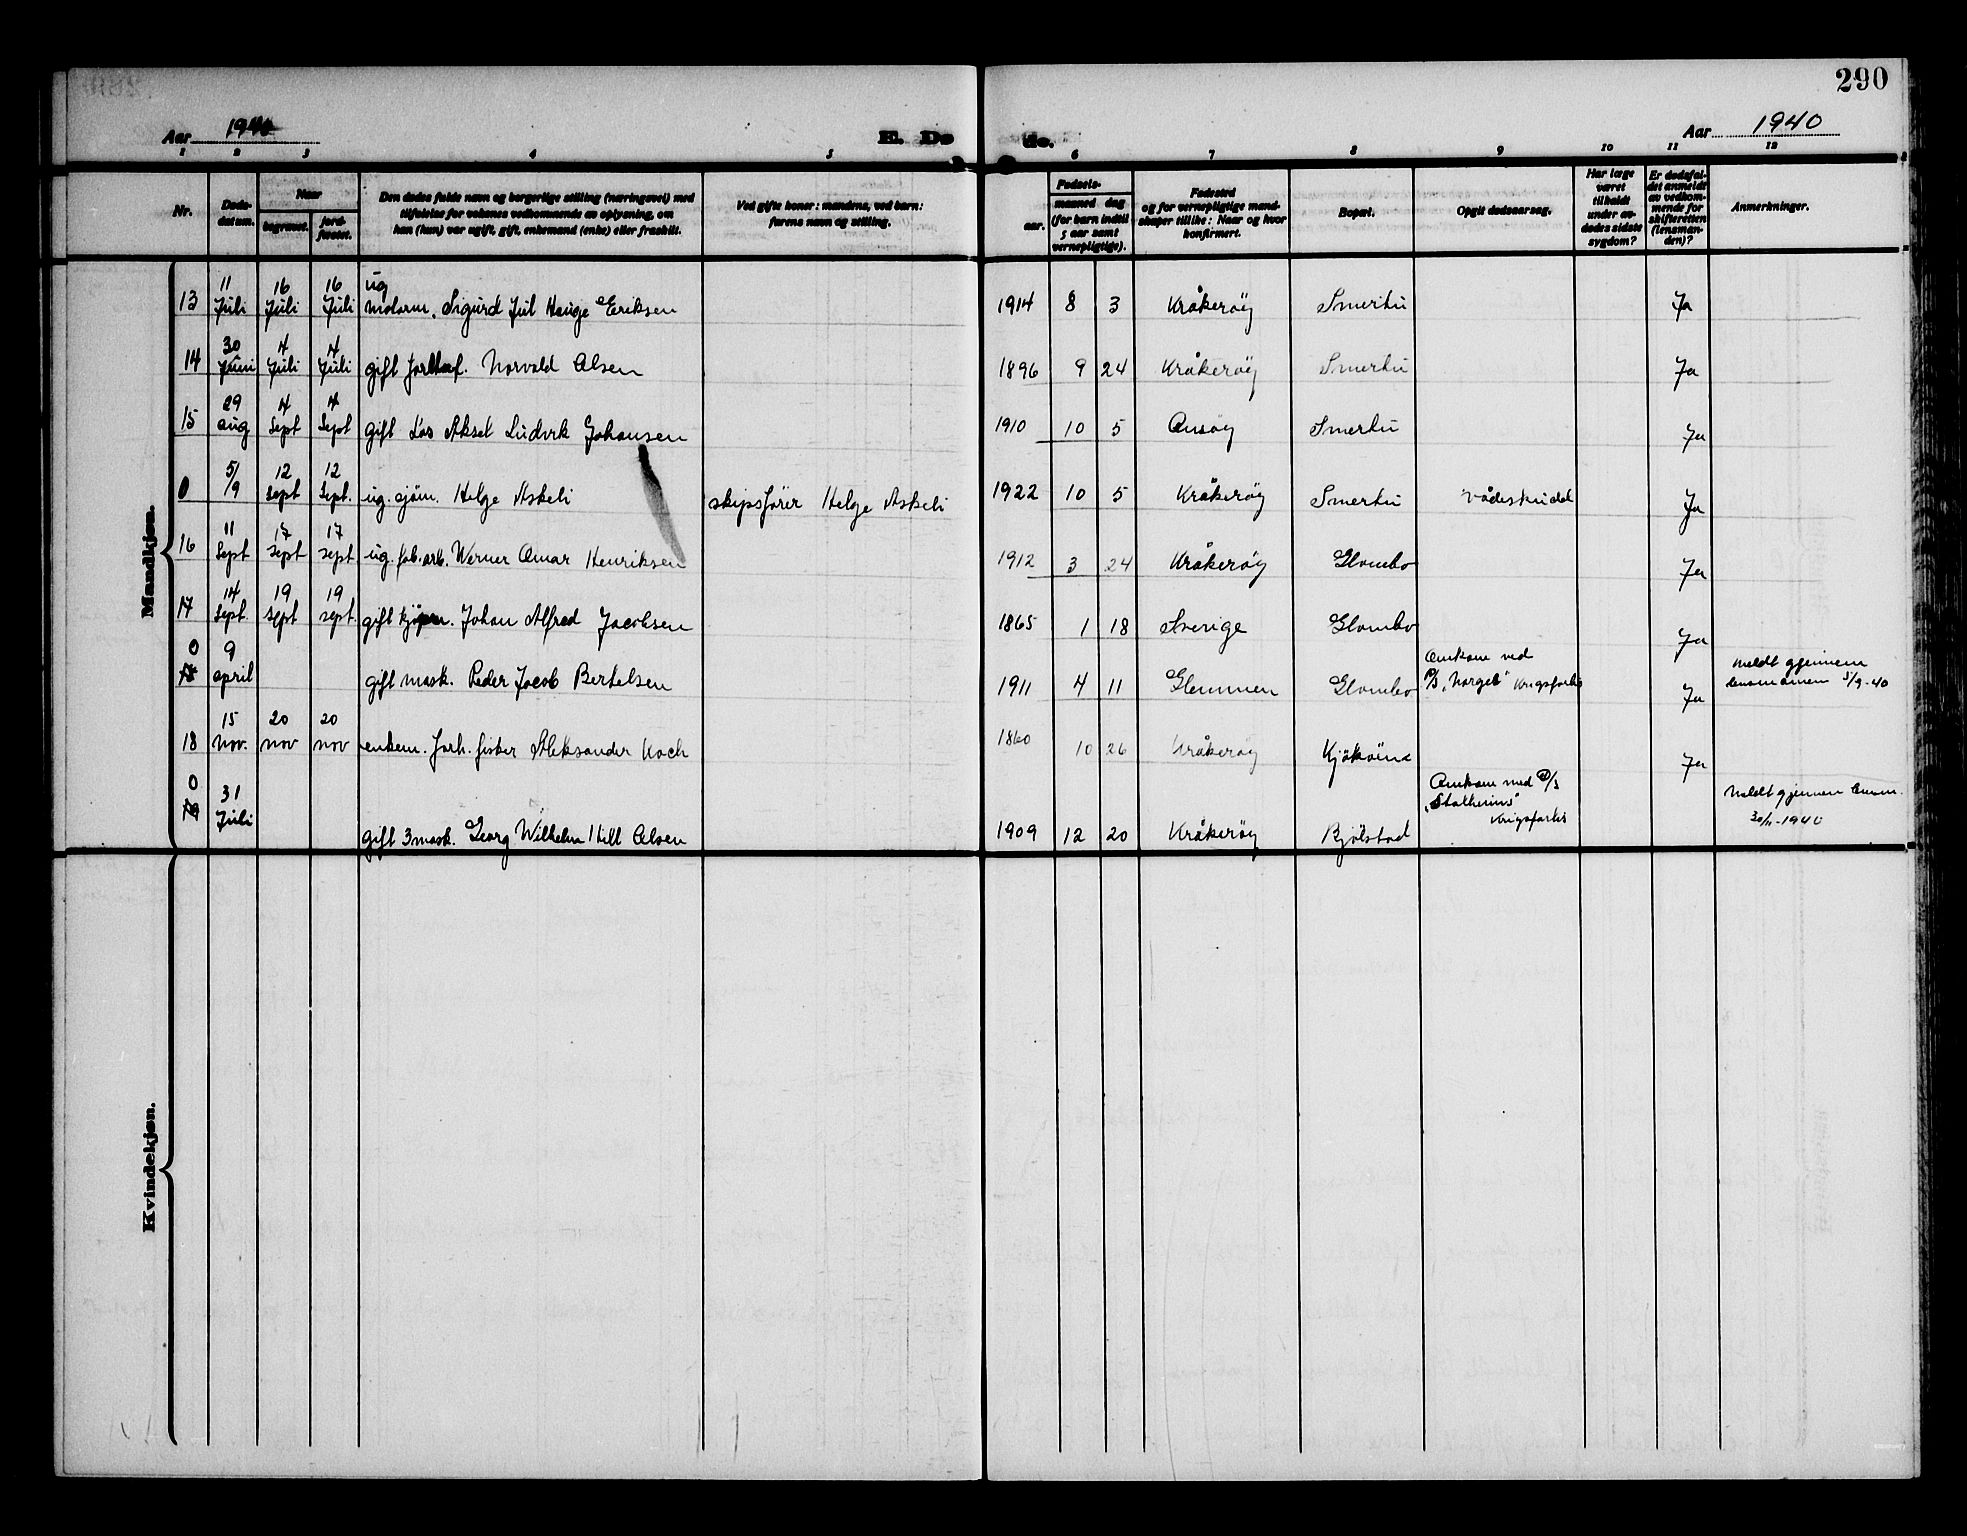 290
Aar 1940 E. Døde. Aar 1940
1 2 3 4 5 6 7 8 9 10 11 12
Nr.
Døds-
datum.
Naar
begravet.
jord-
fæstet.
Den dødes fulde navn og borgerlige stilling (næringsvei) med
tilføielse for voksnes vedkommende av oplysning, om
han (hun) var ugift, gift, enkemand (enke) eller fraskilt.
Ved gifte koner: mandens, ved barn:
farens navn og stilling.
Fødsels-
aar.
maaned dag
(for barn indtil
5 aar samt
vernepligtige).
Fødested
og for vernepligtige mand-
skaper tillike: Naar og hvor
konfirmert.
Bopæl.
Opgit dødsaarsag.
Har læge
været
tilkaldt
under av-
dødes sidste
sygdom?
Er dødsfal-
det anmeldt
av vedkom-
mende for
skifteretten
(lensman-
den)?
Anmerkninger.
Mandkjøn.
13 11 Juli 16 Juli 16 Juli ug
motorm. Sigurd Jul Hauge Eriksen 1914 8 3 Kråkerøy Smertu Ja
14 30 Juni 4 Juli 4 Juli gift Norvald Olsen 1896 9 24 Kråkerøy Smertu Ja
15 29 aug 4 Sept 4 Sept gift Los Aksel Ludvik Johansen 1910 10 5 Onsøy Smertu Ja
0 5/9 12 Sept 12 Sept. ug. sjøm. Helge Askeli skipsfører Helge Askeli 1922 10 5 Kråkerøy Smertu Vådeskudd Ja
16 11 Sept 17 sept 17 sept. ug. fab. arb. Werner Omar Henriksen 1912 3 24 Kråkerøy Glombo Ja
17 14 Sept. 19 sept 19 sept. gift kjøpm. Johan Alfred Jacobsen 1865 1 18 Sverige Glombo Ja
0 18 9 april gift mask. Peder Jacob Bertelsen 1911 4 11 Glemmen Glombo Omkom ved
D/S "Norges" Krigsforlis Ja Meldt gjennem
lensmannen 5/9-40
18 15 nov. 20 nov 20 nov enkem. forh. fisker Aleksander Koch 1860 10 26 Kråkerøy Kjøkøine Ja
0 19 31 Juli gift 3 mask. Georg Wilhelm Hill Olsen 1909 12 20 Kråkerøy Bjølstad Omkom med D/S
Krigsforlis Meldt gjennem lensm.
30/11-1940
Kvindekjøn.